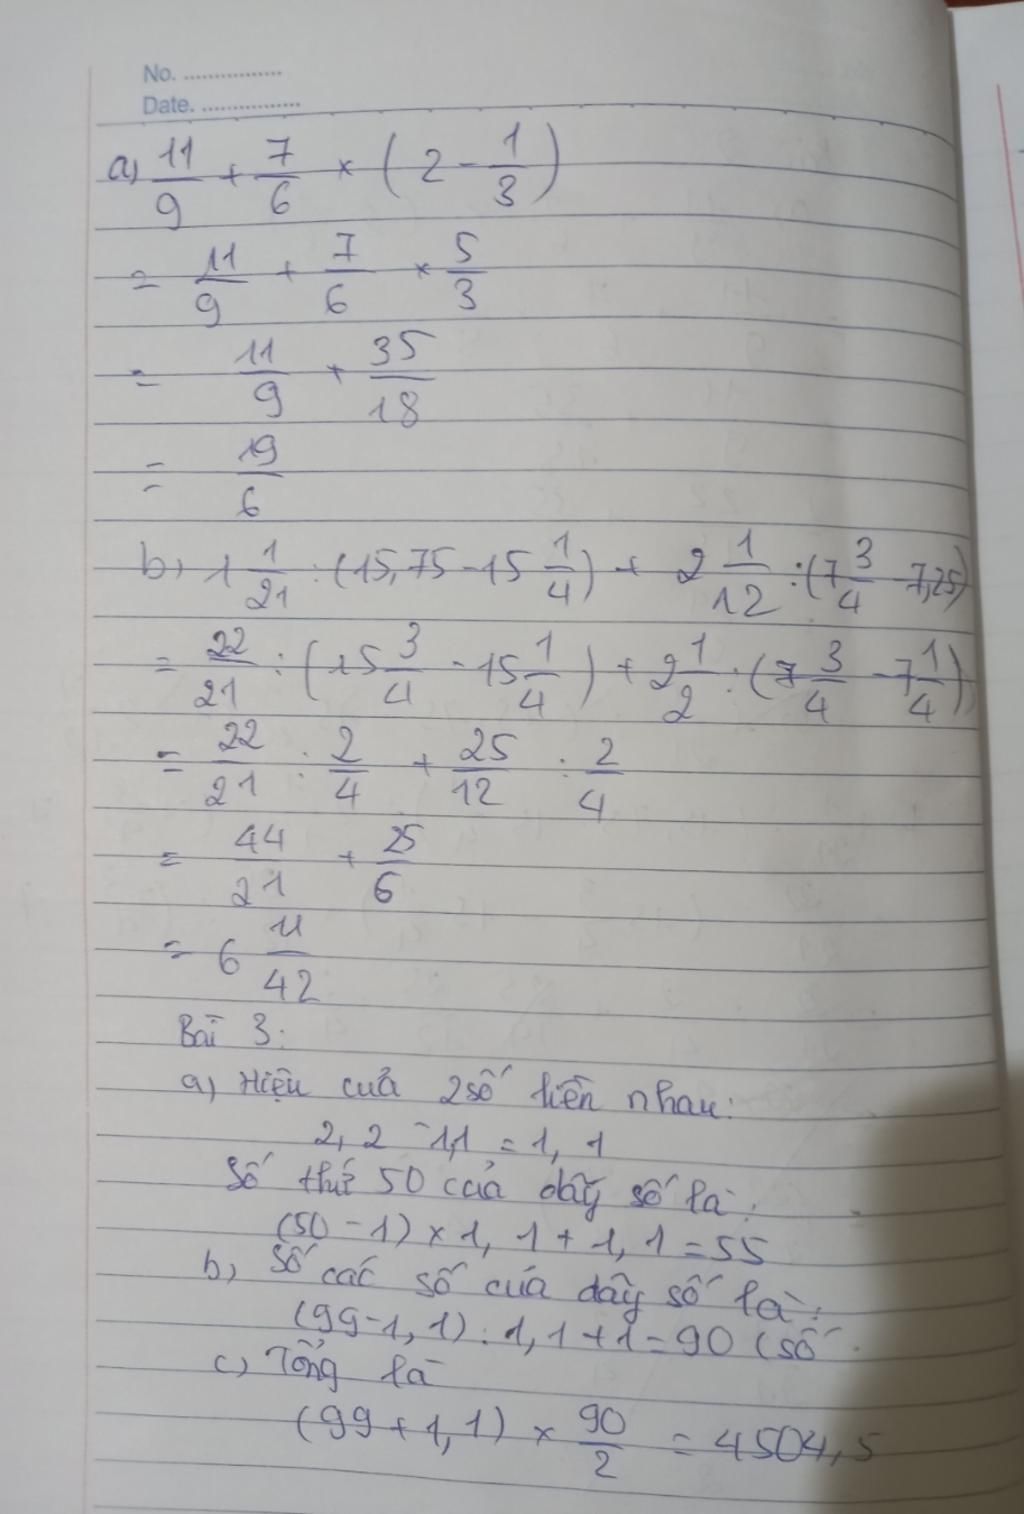 No. ................
Date. ................
a) 11/9 + 7/6 × (2 - 1/3)
= 11/9 + 7/6 × 5/3
= 11/9 + 35/18
= 19/6
b, 1 1/21 : (15,75 - 15 1/4) + 2 1/12 : (7 3/4 - 7,25)
= 22/21 : (15 3/4 - 15 1/4) + 2 1/2 : (7 3/4 - 7 1/4)
= 22/21 : 2/4 + 25/12 : 2/4
= 44/21 + 25/6
= 6 11/42
Bài 3:
a, Hiệu của 2 số liền nhau:
2,2 - 1,1 = 1,1
Số thứ 50 của dãy số là:
(50 - 1) × 1,1 + 1,1 = 55
b, Số các số của dãy số là:
(99 - 1,1) : 1,1 + 1 = 90 (số
c, Tổng là
(99 + 1,1) × 90/2 = 4504,5